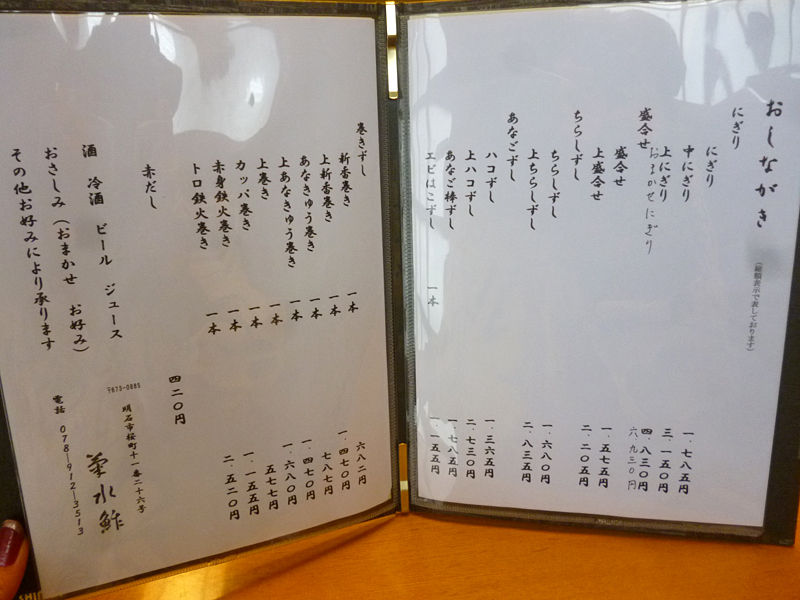 おしながき
(総額表示で表しております)
にぎり
にぎり 一．七八五円
中にぎり 三．一五〇円
上にぎり 四．八三〇円
おまかせにぎり 六．九三〇円
盛合せ
盛合せ 一．五七五円
上盛合せ 二．二〇五円
ちらしずし
ちらしずし 一．六八〇円
上ちらしずし 二．八三五円
あなごずし
ハコずし 一．三六五円
上ハコずし 二．七三〇円
あなご棒ずし 一．七八五円
エビはこずし 一本 一．一五五円
巻きずし
新香巻き 一本 六八二円
上新香巻き 一本 一．四七〇円
あなきゅう巻き 一本 七八七円
上あなきゅう巻き 一本 一．四七〇円
上巻き 一本 一．六八〇円
カッパ巻き 一本 五七七円
赤身鉄火巻き 一本 一．一五五円
トロ鉄火巻き 一本 二．五二〇円
赤だし 四二〇円
酒 冷酒 ビール ジュース
おさしみ(おまかせ お好み)
その他お好みにより承ります
〒673-0885
明石市桜町十一番二十六号
菊水鮓
電話 078-912-3513